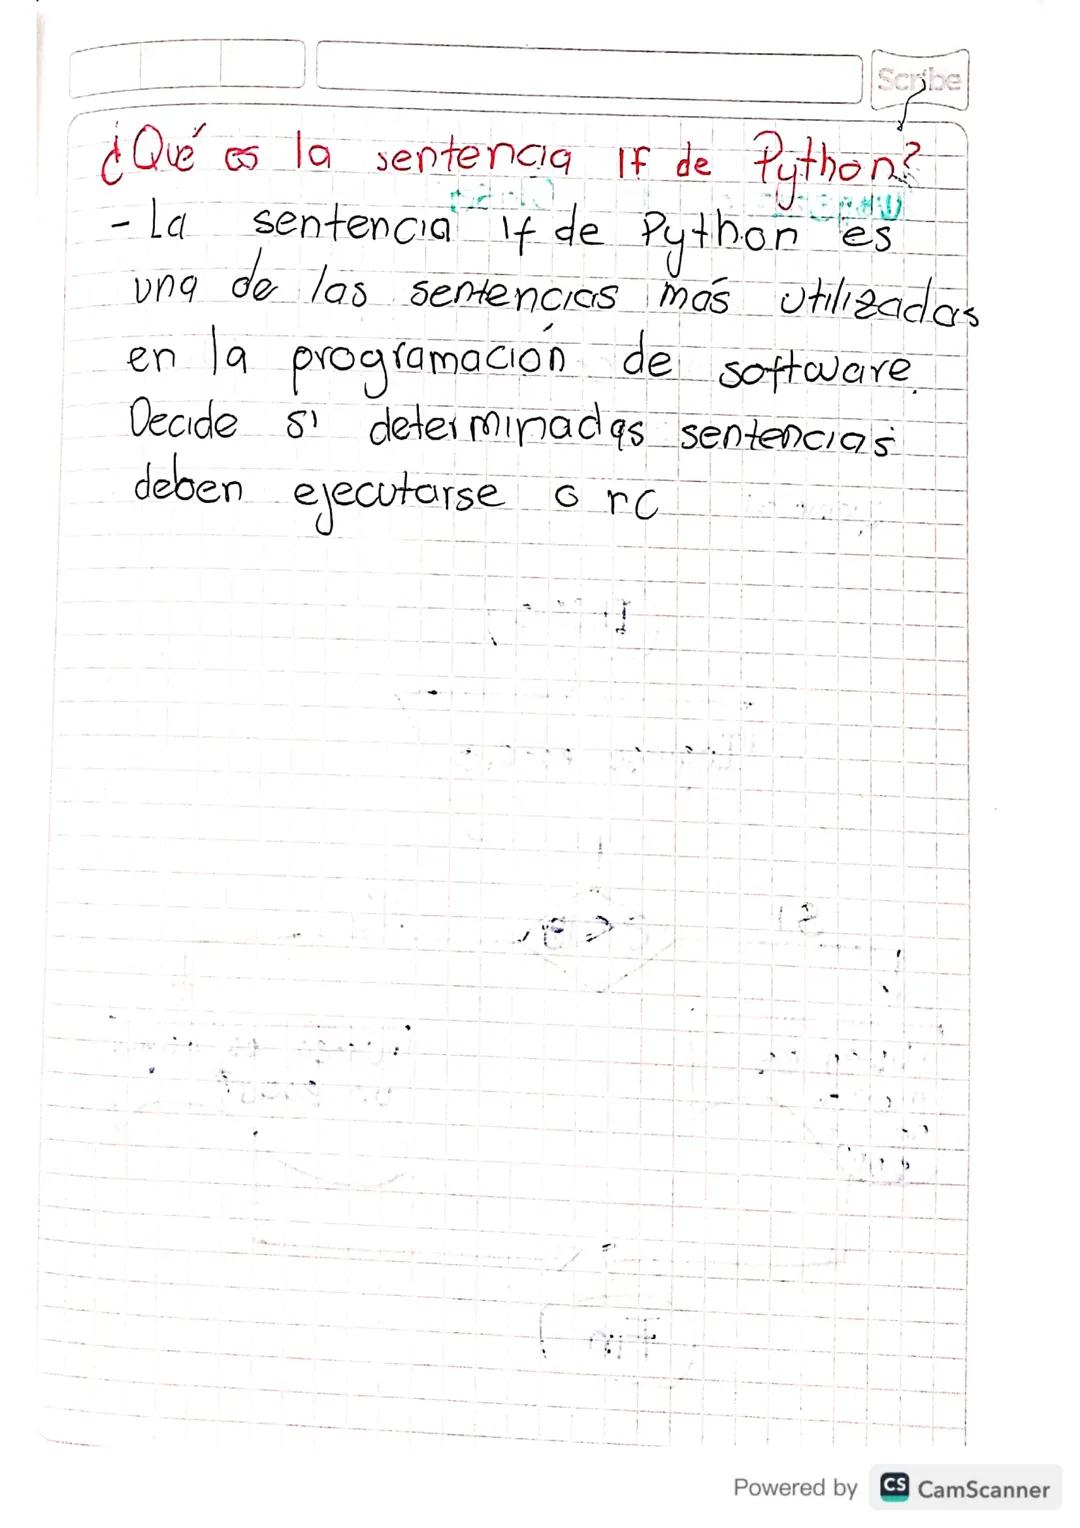 Scribe
¿Qué es la sentencia If de Python?
- La sentencia If de Python es
una de las sentencias más utilizadas
en la programación de software.
Decide si determinadas sentencias
deben ejecutarse o no
Powered by CS CamScanner